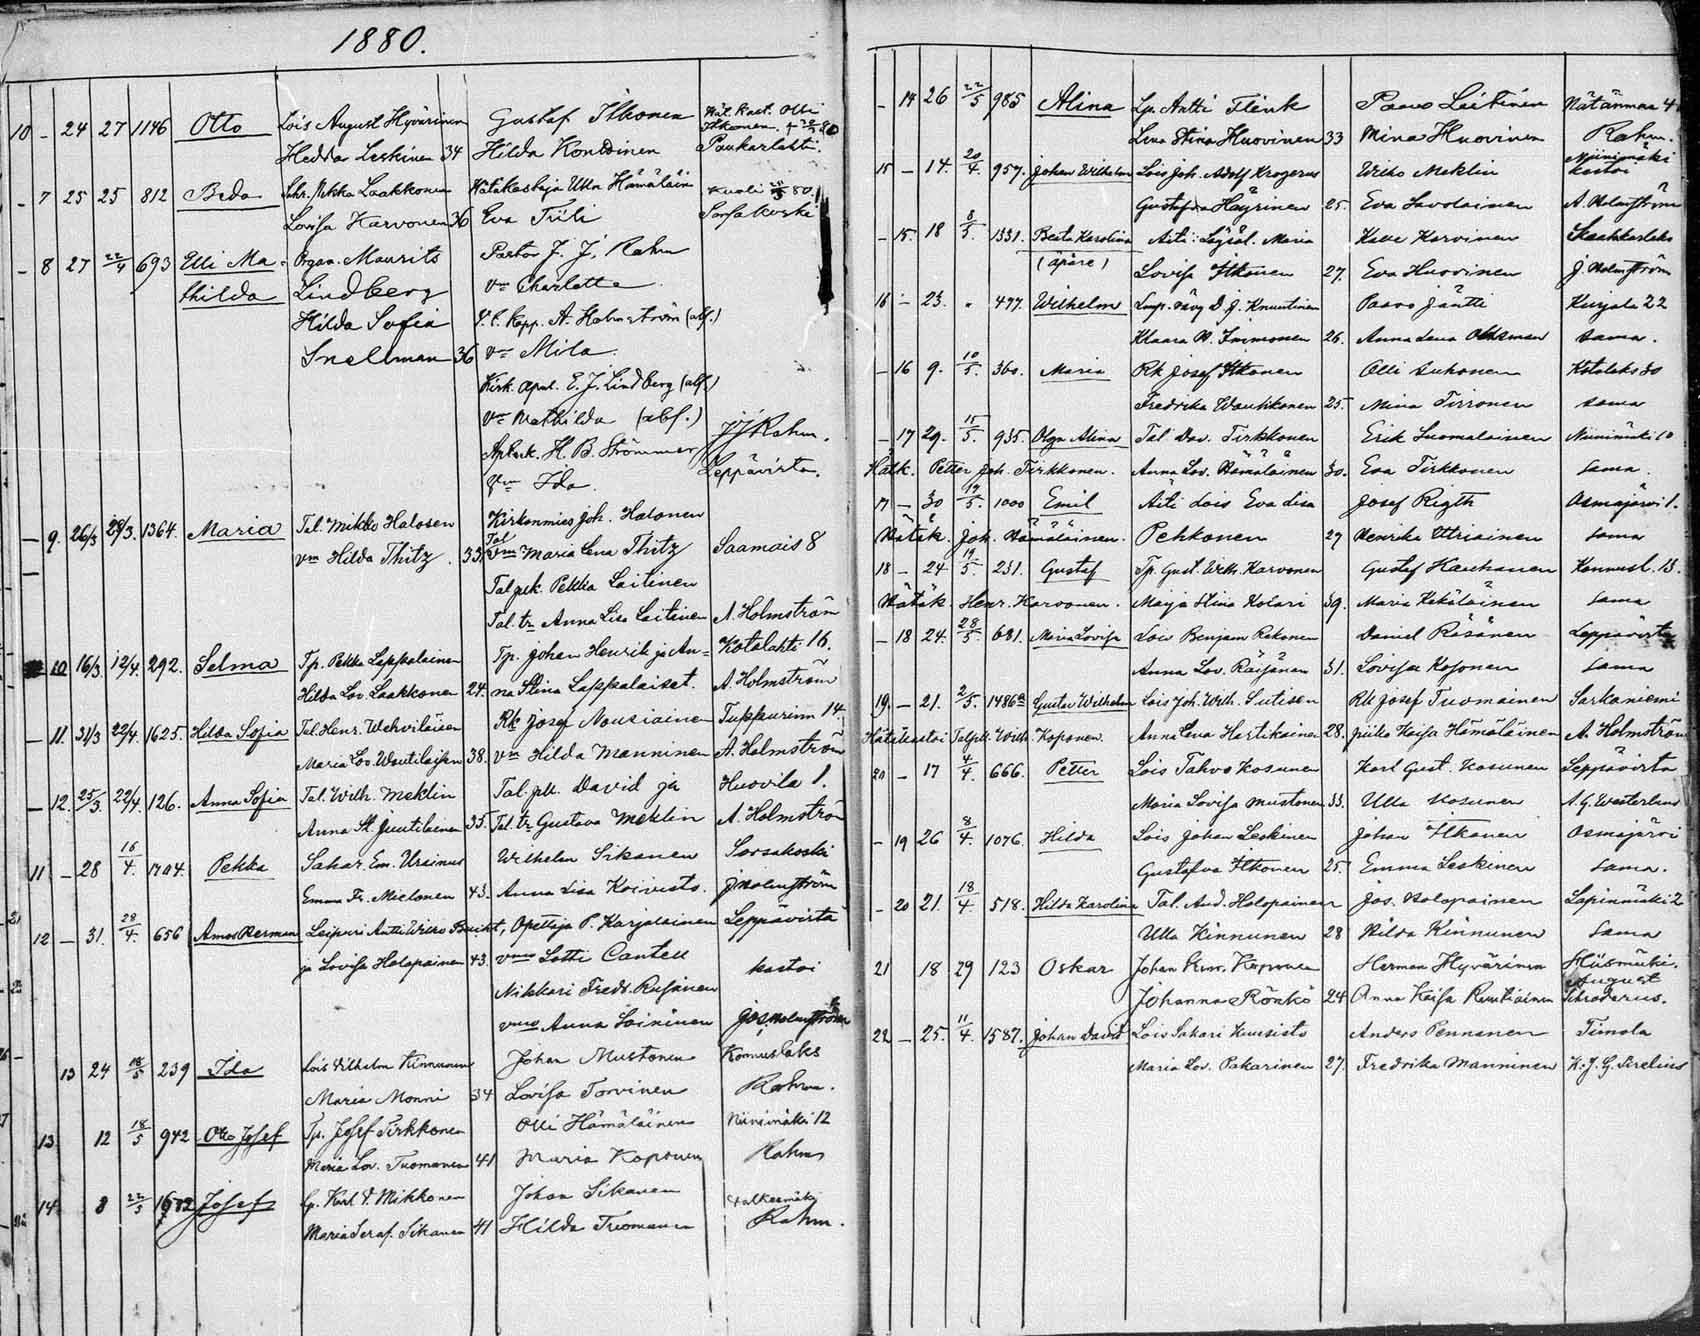 1880.
10 - 24 27 1146 Otto Lois August Hyvärinen Gustaf Itkonen Hät. Kast. Olli
Itkonen.
Hedda Leskinen 34 Hilda Kontinen Paukarlahti.
- 7 25 25 812 Beda Pekka Laakkonen Hätäkastaja Ulla Hämäläin Kuoli 80.
Lovisa Karvonen 36 Eva Tiili Sorsakoski
- 8 27 22/4 693 Elli Ma- Organ. Maurits Pastor J. J. Rahm
thilda Lindberg Vm Charlotta
Hilda Sofia V. t. Kapp. A. Holmström (abf.)
Snellman 36 Vm Mila.
Kirk. apul. E. J. Lindberg (abf.)
Vm Mathilda (abf.)
H. B. Strömmer JJRahm.
Vm Ida. Leppävirta.
- 9. 26/3 28/3. 1364. Maria Tal. Mikko Halosen Kirkonmies Joh. Halonen
vm Hilda Thitz 33. Tal vm Maria Lena Thitz Saamais 8
Talpuk. Pekka Laitinen
Tal. tr Anna Lisa Laitinen A. Holmström
10 16/3. 12/4. 292. Selma Tp. Pekka Lappalainen Tp. Johan Henrik ja An- Kotalahti 16.
Hilda Lov. Laakkonen 24. na Stina Lappalaiset. A. Holmström
- 11. 31/3 22/4. 1625. Hilda Sofia Tal. Henr. Wehviläisen Rk Josef Nousiainen Tuppurinm 14
Maria Lov. Woutilaisen 38. vm Hilda Manninen A. Holmström
- 12. 25/3. 22/4. 126. Anna Sofia Tal. Wilh. Meklin Tal. plk. David ja Huovila 1.
Anna St. Juutilainen 35. Tal. tr Gustava Meklin A. Holmström
11 - 28 16/4. 1704. Pekka Sakar. Em. Ursinus Wilhelm Sikanen Sorsakoski
Emma Fr. Mietonen 43. Anna Lisa Koivisto. J Holmström
12 - 31. 28/4. 656 Amos Herman Leipuri Antti Wilho Opettaja P. Karjalainen Leppävirta
ja Lovisa Holopainen 43. vmo Lotti Cantell kastoi
Nikkari Fredr. Rusanen
vmo Anna Soininen Jos. Holmström
13 24 18/5 239 Ida Lois Vilhelm Kinnunen Johan Mustonen Konnuslaks
Maria Monni 34 Lovisa Torvinen Rahm.
13 12 18/5 942 Otto Josef Tp. Josef Tirkkonen Olli Hämäläinen Niinimäki 12
Maria Lov. Tuomanen 41 Maria Koponen Rahm
14 8 22/5 Josef Lp. Karl V. Mikkonen Johan Sikanen
Maria Seraf. Sikanen 41 Hilda Tuomanen Rahm.
- 14 26 22/5 985 Alina Lp. Antti Flink Paavo Leitinen Nätänmaa 4
Lena Stina Huovinen 33 Mina Huovinen Rahm.
15 - 14. 20/4. 957. Johan Wilhelm Lois Joh. Adolf Krogerus Wilho Meklin Niinimäki
kastoi
Gustafva Häyrinen 25. Eva Savolainen A. Holmström
- 15. 18 8/5. 1331. Beata Karolina Äiti: Maria Kalle Karvinen Saahkarlaks
(äpäre) Lovisa Itkonen 27. Eva Huovinen J. Holmström
16 - 23. " 477. Wilhelm D. J. Knuutinen Paavo Jäntti Kurjala 22
Klaara W. Immonen 26. Anna Lena sama.
- 16 9. 10/5. 360. Maria Rk Josef Itkonen Olli Auhonen Kotalaks 30
Fredrika Wautikonen 25. Mina Tirronen sama
- 17 29. 15/5. 935. Olga Alina Tal Dav. Tirkkonen Erik Suomalainen Niinimäki 10
Hätk. Petter Joh. Tirkkonen. Anna Lov. Hämäläinen 30. Eva Tirkkonen sama.
17 - 30 19/5. 1000 Emil Äiti Lois Eva Lisa Josef Rigth Osmajärvi 1.
Hätäk. Joh. Hämäläinen. Pehkonen 27 Henrika Utriainen sama
18 - 24 19/5. 231. Gustaf Tp. Gust. Wilh. Karvonen Gustaf Kauhanen Konnusl. 13.
Hätäk. Henr. Karvonen. Maija Stina Kolari 39. Maria Kekäläinen sama
- 18 24. 28/5. 681. Maria Lovisa Lois Benjam Rekonen Daniel Räsänen Leppävirta
Anna Lov. Räisänen 31. Lovisa Kosonen sama
19. - 21. 2/5. 1486a Gustav Wilhelm Lois Joh. Wilh. Sutisen Rk Josef Tuomainen Sarkaniemi
Hätäkastoi Talplk. Wilh. Koponen. Anna Lena Hartikainen 28. piika Kaisa Hämäläinen A. Holmström
20 - 17 4/4. 666. Petter Lois Tahvo Kosunen Karl Gust. Kosunen Leppävirta
Maria Lovisa Mustonen 33. Ulla Kosunen A. G. Westerlund
- 19 26 8/4. 1076. Hilda Lois Johan Leskinen Johan Itkonen Osmajärvi
Gustafva Itkonen 25. Emma Leskinen sama.
- 20 21. 18/4. 518. Hilda Karolina Tal. And. Holopainen Jos. Holopainen Lapinmäki 2
Ulla Kinnunen 28 Hilda Kinnunen sama
21 18 29 123 Oskar Johan Koponen Herman Hyvärinen Hiismäki.
August
Johanna Rönkö 24. Anna Kaisa Ruutiainen Schroderus.
22 - 25. 11/4. 1587. Johan David Lois Sakari Kuusisto Anders Pennanen Timola
Maria Lov. Pakarinen 27. Fredrika Manninen K. J. G. Sirelius